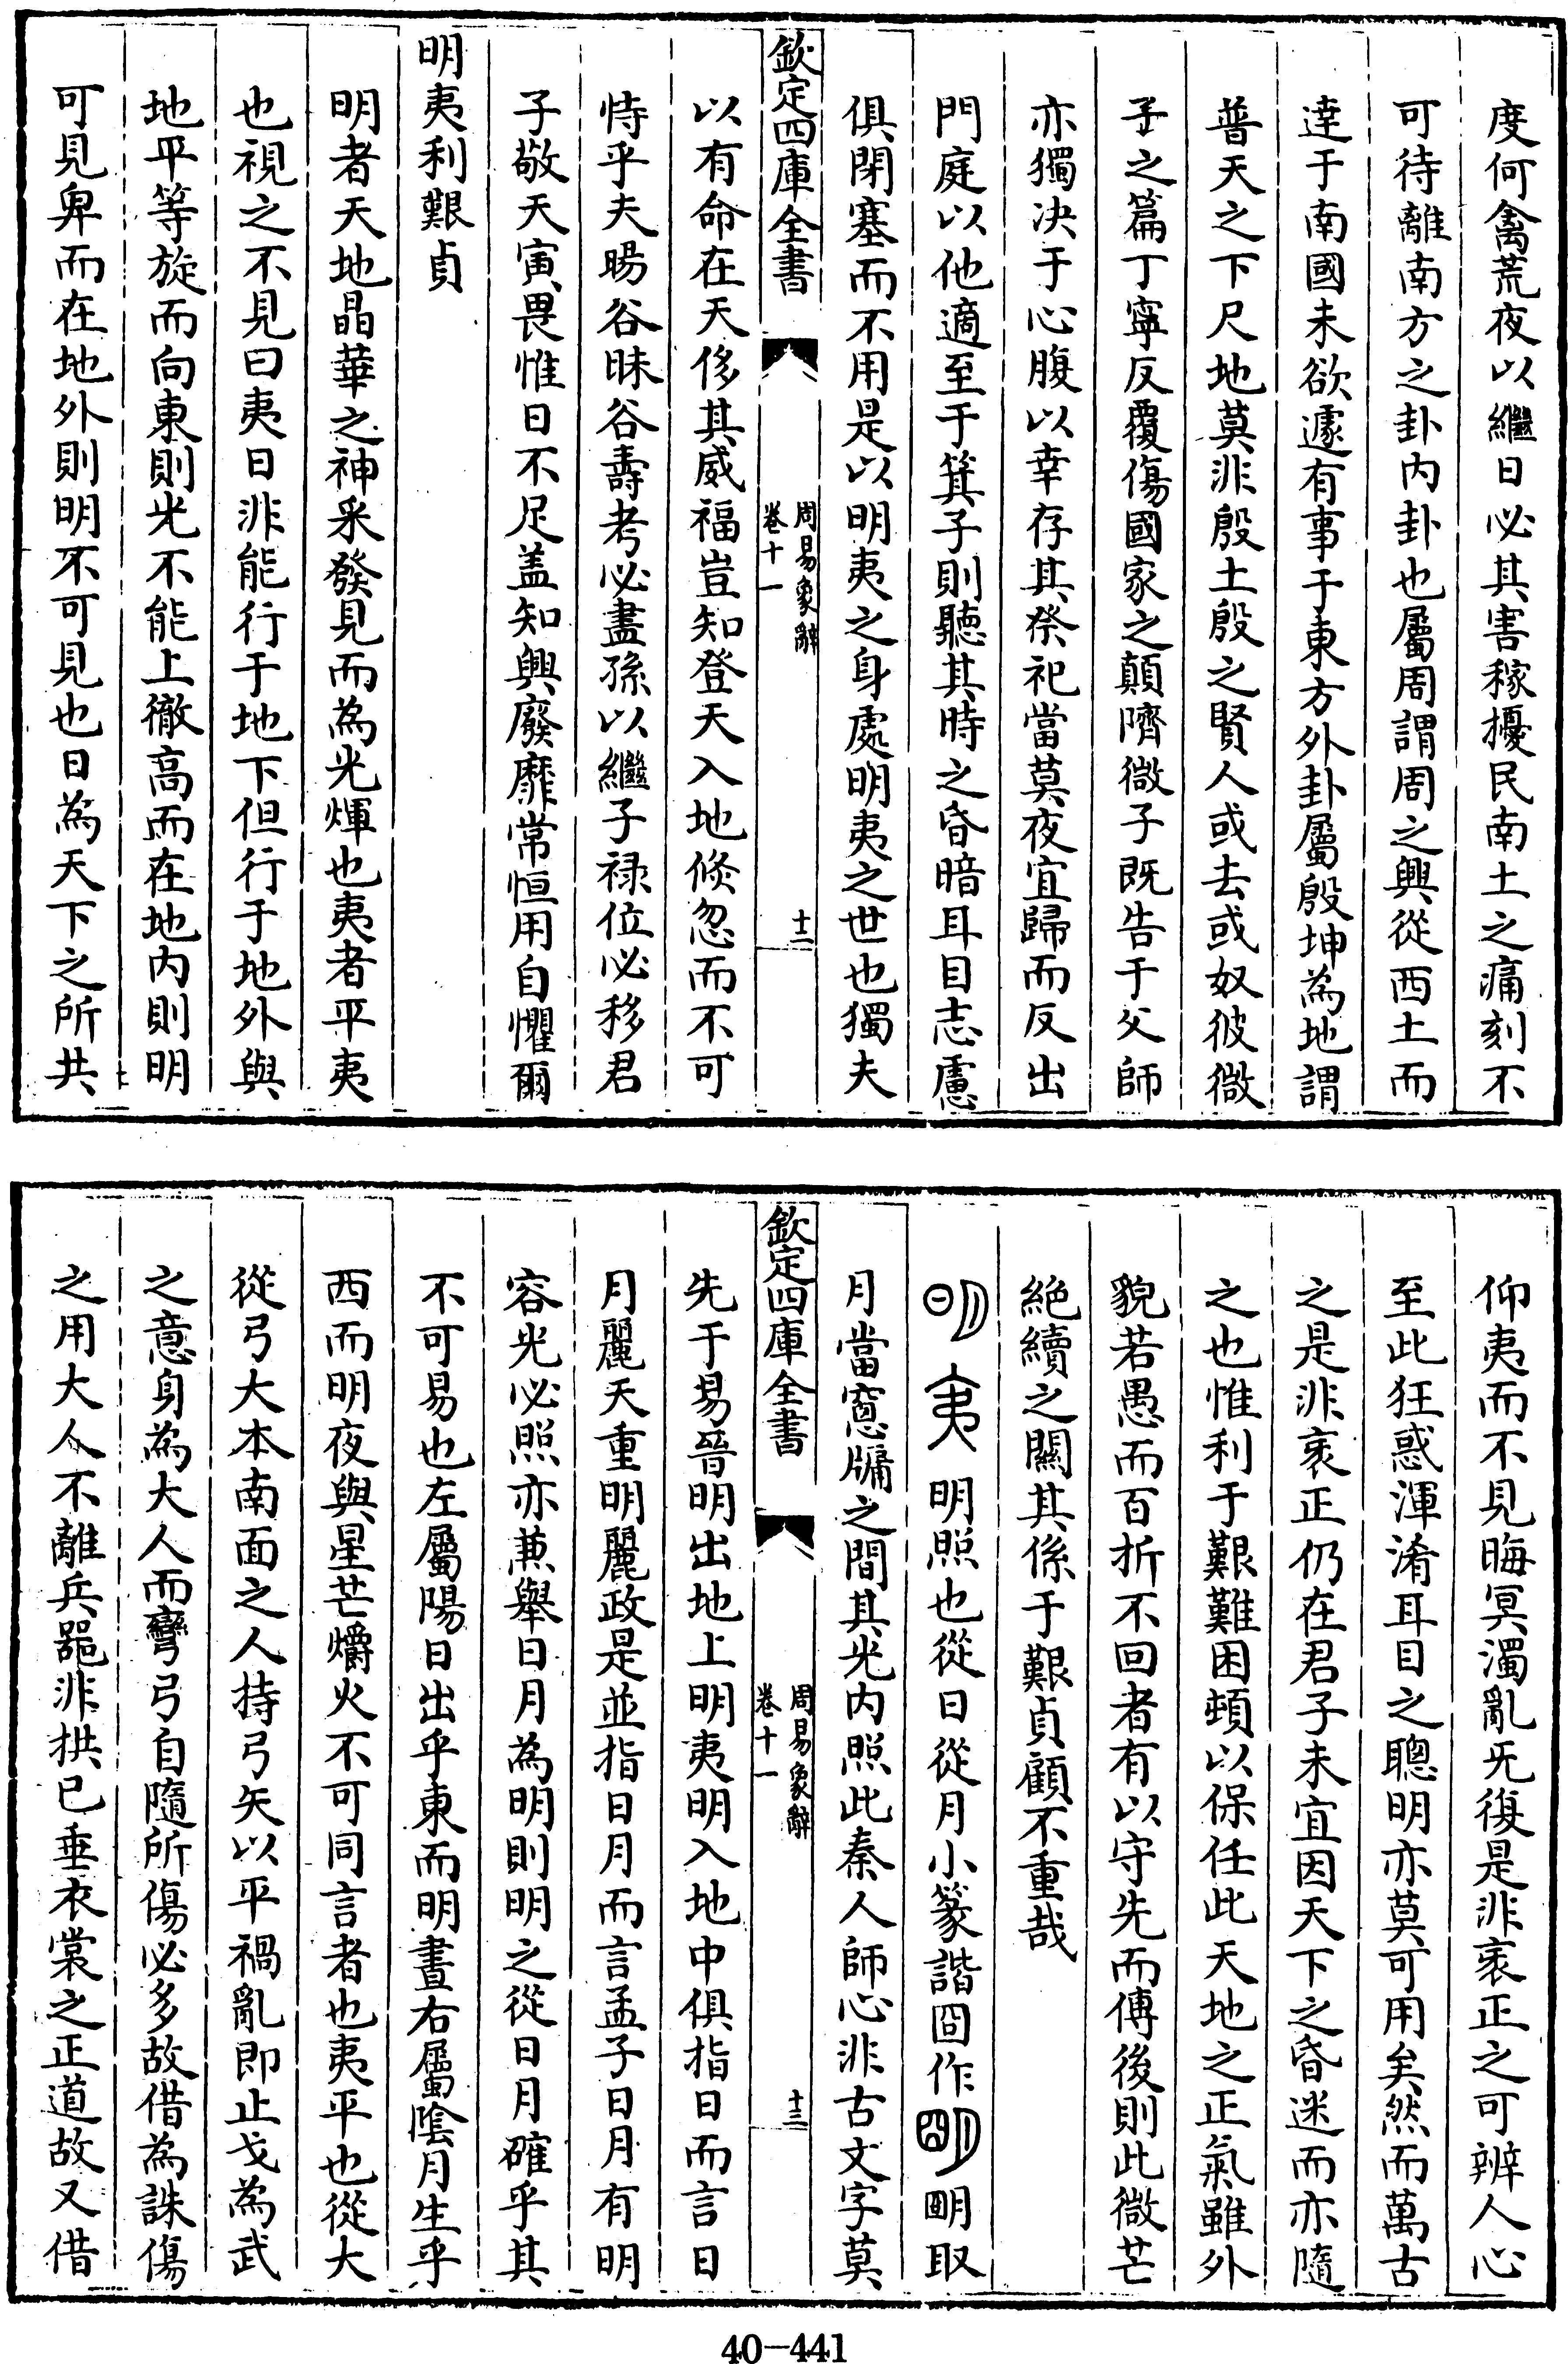 度何禽荒夜以繼日必其害稼擾民南土之痛刻不
可待離南方之卦内卦也屬周謂周之興從西土而
達于南國未欲遽有事于東方外卦屬殷坤為地謂
普天之下尺地莫非殷土殷之賢人或去或奴彼微
子之篇丁寧反覆傷國家之顛隮微子既告于父師
亦獨决于心腹以幸存其祭祀當莫夜宜歸而反出
門庭以他適至于箕子則聽其時之昏暗耳目志慮
俱閉塞而不用是以明夷之身處明夷之世也獨夫
欽定四庫全書
周易象辭
卷十一
十二
以有命在天侈其威福豈知登天入地倏忽而不可
恃乎夫暘谷昧谷壽考必盡孫以繼子禄位必移君
子敬天寅畏惟日不足盖知興廢靡常恒用自懼爾
明夷利艱貞
明者天地晶華之神采發見而為光煇也夷者平夷
也視之不見曰夷日非能行于地下但行于地外與
地平等旋而向東則光不能上徹高而在地内則明
可見卑而在地外則明不可見也日為天下之所共
仰夷而不見晦冥濁亂旡復是非衺正之可辨人心
至此狂惑渾淆耳目之聰明亦莫可用矣然而萬古
之是非衺正仍在君子未宜因天下之昏迷而亦隨
之也惟利于艱難困頓以保任此天地之正氣雖外
貌若愚而百折不回者有以守先而傅後則此微芒
絶續之關其係于艱貞顧不重哉
明夷明照也從日從月小篆諧囧作朙明取
月當窻牖之間其光内照此秦人師心非古文字莫
欽定四庫全書
周易象辭
卷十一
十三
先于易晉明出地上明夷明入地中俱指日而言日
月麗天重明麗政是並指日月而言孟子日月有明
容光必照亦兼舉日月為明則明之從日月確乎其
不可易也左屬陽日出乎東而明晝右屬陰月生乎
西而明夜與星芒爝火不可同言者也夷平也從大
從弓大本南面之人持弓矢以平禍亂即止戈為武
之意身為大人而彎弓自隨所傷必多故借為誅傷
之用大人不離兵器非拱已垂衣裳之正道故又借
40-441